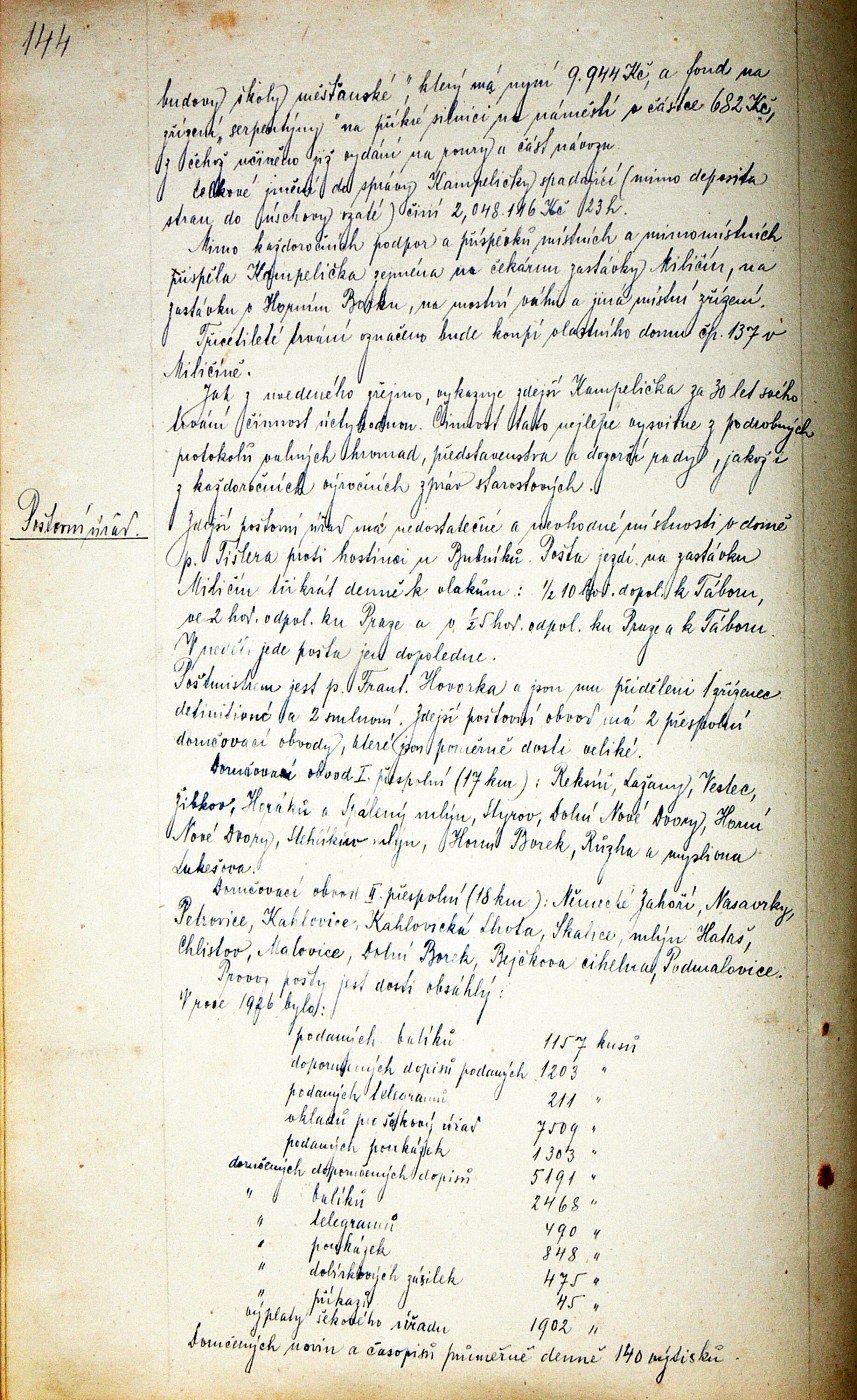 144
budovy školy měšťanské", který má nyní 9.944 Kč, a fond na
zřízení "serpentýny" na příkré silnici na náměstí v částce 682 Kč,
z čehož učiněno již vydání na roury a část návozu.
Celkové jmění do správy Kampeličky spadající (mimo deposita
stran do úschovy vzaté) činí 2,048.196 Kč 23 h.
Mimo každoročních podpor a příspěvků místních a mimomístních
přispěla Kampelička zejména na čekárnu zastávky Miličín, na
zastávku v Horním Borku, na mostní váhu a jiná místní zřízení.
Třicetileté trvání označeno bude koupí vlastního domu čp. 137 v
Miličíně.
Jak z uvedeného zřejmo, vykazuje zdejší Kampelička za 30 let svého
trvání činnost úctyhodnou. Činnost tato nejlépe vysvitne z podrobných
protokolů valných hromad, představenstva a dozorčí rady, jakož i
z každoročních výročních zpráv starostových.
Poštovní úřad.
Zdejší poštovní úřad má nedostatečné a nevhodné místnosti v domě
p. Tišlera proti hostinci u Bubníků. Pošta jezdí na zastávku
Miličín třikrát denně k vlakům: 1/2 10 hod. dopol. k Táboru,
ve 2 hod. odpol. ku Praze a v 1/2 5 hod. odpol. ku Praze a k Táboru.
V neděli jede pošta jen dopoledne.
Poštmistrem jest p. Frant. Hovorka a jsou mu přiděleni 1 zřízenec
definitivní a 2 smluvní. Zdejší poštovní obvod má 2 přespolní
doručovací obvody, které jsou poměrně dosti veliké.
Doručovací obvod I. přespolní (17 km): Reksín, Lažany, Vestec,
Žibkov, Horáků a Spálený mlýn, Styrov, Dolní Nové Dvory, Horní
Nové Dvory, mlýn, Horní Borek, Růžha a myslivna
Lukešova.
Doručovací obvod II. přespolní (18 km): Německé Zahoří, Nasavrky,
Petrovice, Kahlovice, Kahlovická Lhota, Skalice, mlýn Hataš,
Chlistov, Malovice, Dolní Borek, Bejčkova cihelna, Podmalovice.
Provoz pošty jest dosti obsáhlý:
V roce 1926 bylo:
podaných balíků 1157 kusů
doporučených dopisů podaných 1203 "
podaných telegramů 211 "
vkladů pro šekový úřad 7509 "
podaných poukázek 1303 "
doručených doporučených dopisů 5191 "
" balíků 2468 "
" telegramů 490 "
" poukázek 848 "
" dobírkových zásilek 475 "
" příkazů 45 "
výplaty šekového úřadu 1902 "
Doručených novin a časopisů průměrně denně 140 výtisků.